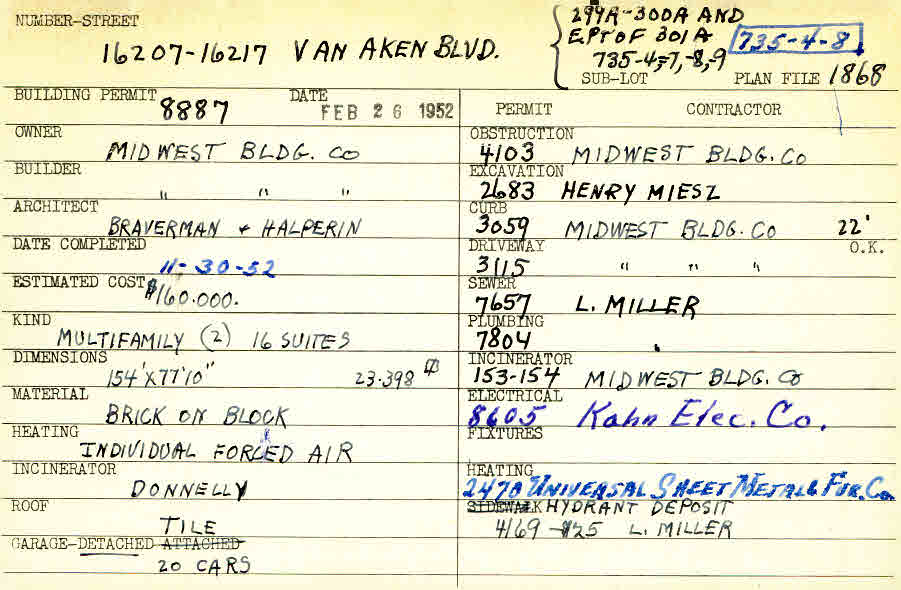 NUMBER-STREET
16207-16217 VAN AKEN BLVD.
299A-300A AND
E PT OF 301A
735-4-7,-8,-9
735-4-8
SUB-LOT
PLAN FILE 1868
BUILDING PERMIT 8887
DATE FEB 26 1952
OWNER
MIDWEST BLDG. CO
BUILDER
" " "
ARCHITECT
BRAVERMAN + HALPERIN
DATE COMPLETED
11-30-52
ESTIMATED COST $160.000.
KIND
MULTIFAMILY (2) 16 SUITES
DIMENSIONS
154'X77'10" 23.398
MATERIAL
BRICK ON BLOCK
HEATING
INDIVIDUAL FORCED AIR
INCINERATOR
DONNELLY
ROOF
TILE
GARAGE-DETACHED ATTACHED
20 CARS
PERMIT CONTRACTOR
OBSTRUCTION
4103 MIDWEST BLDG. CO
EXCAVATION
2683 HENRY MIESZ
CURB
3059 MIDWEST BLDG. CO 22'
DRIVEWAY O.K.
3115 " " "
SEWER
7657 L. MILLER
PLUMBING
7804
INCINERATOR
153-154 MIDWEST BLDG. CO
ELECTRICAL
8605 Kahn Elec. Co.
FIXTURES
HEATING
2470 UNIVERSAL SHEET METAL & FUR. Co.
SIDEWALK HYDRANT DEPOSIT
4169 - $25 L. MILLER